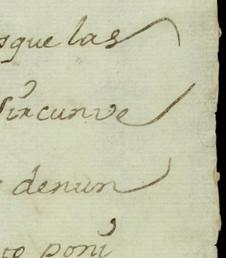 sque las
Sircunve
denun
to poni